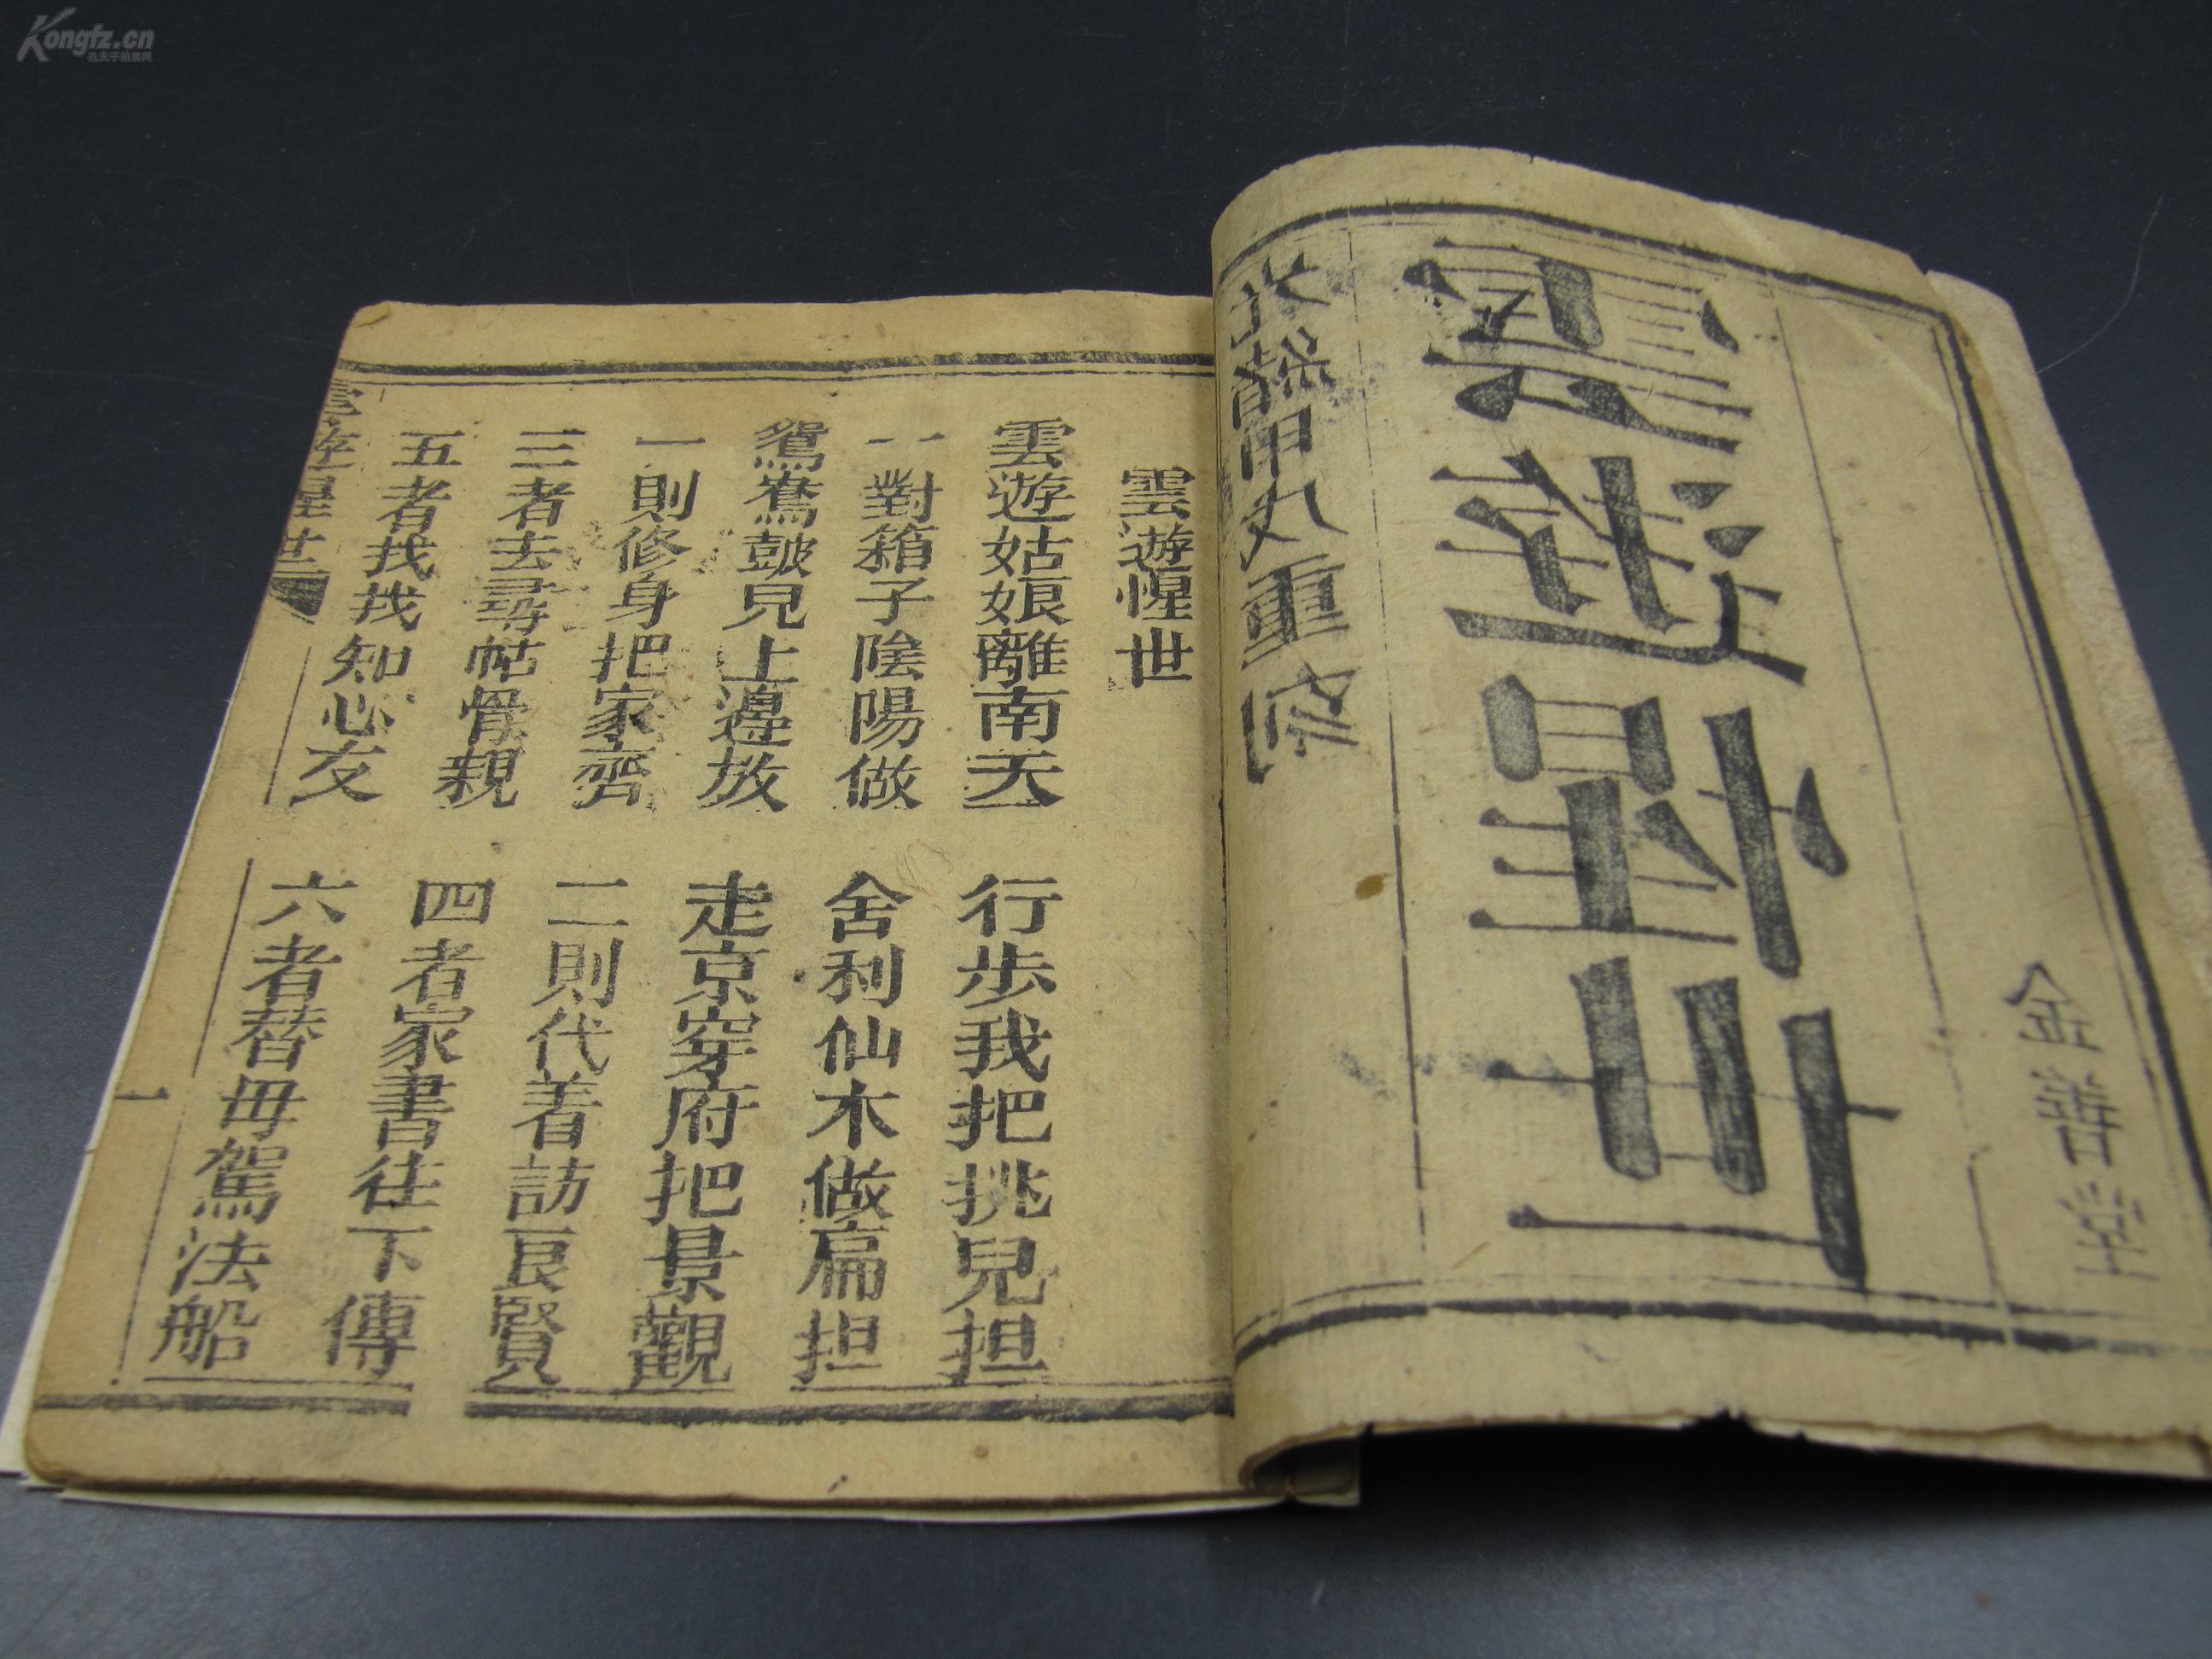 金善堂
雲遊惺世
重刻
雲遊惺世
雲遊姑娘離南天 行步我把挑兒担
一對箱子陰陽做 舍利仙木做扁担
鴛鴦鼓兒上邊放 走京穿府把景觀
一則修身把家齊 二則代着訪良賢
三者去尋帖骨親 四者家書往下傳
五者找找知心友 六者替母駕法船
雲遊惺世 一
Kongfz.cn
孔夫子拍卖网